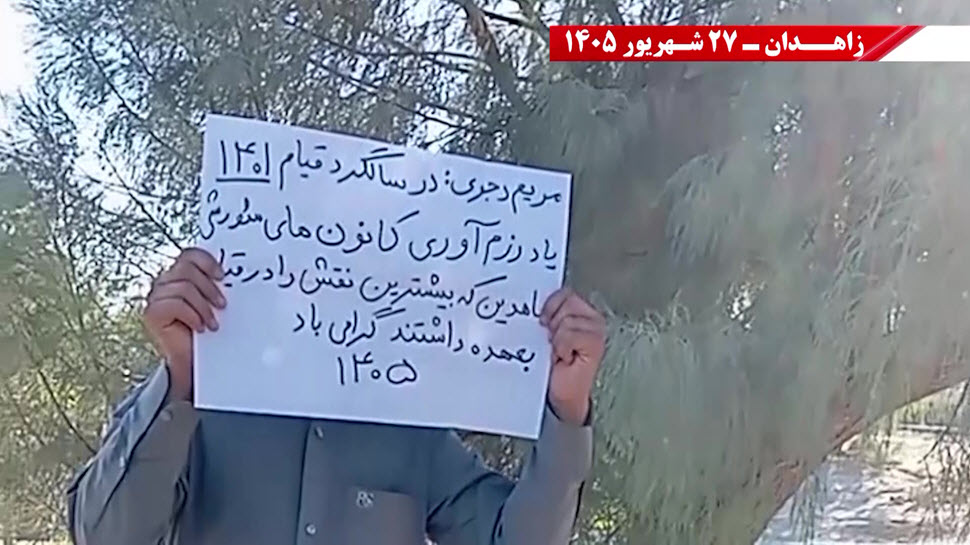 زاهـدان ــ ۲۷ شهریور ۱۴۰۵
مریم رجوی: در سالگرد قیام ۱۴۰۱
یاد رزم آوری کانون های شورشی
مجاهدین که بیشترین نقش را در قیام
بعهده داشتند گرامی باد
۱۴۰۵